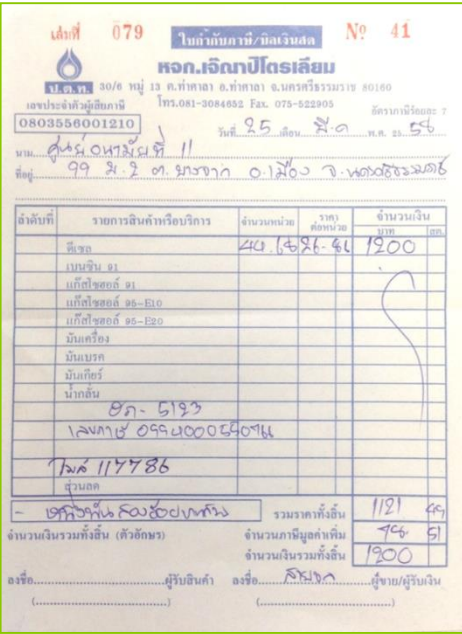 เล่มที่ 079 ใบกำกับภาษี/บิลเงินสด Nº 41
หจก.เจ๊ณาปิโตรเลียม
ป.ต.ท. 30/6 หมู่ 13 ต.ท่าศาลา อ.ท่าศาลา จ.นครศรีธรรมราช 80160
เลขประจำตัวผู้เสียภาษี โทร.081-3084652 Fax. 075-522905 อัตราภาษีร้อยละ 7
0803556001210 วันที่ 25 เดือน มี.ค พ.ศ. 25 58
นาม ศูนย์อนามัยที่ 11
ที่อยู่ 99 ม.2 ต.บางจาก อ.เมือง จ.นครศรีธรรมราช
ลำดับที่ รายการสินค้าหรือบริการ จำนวนหน่วย ราคาต่อหน่วย จำนวนเงิน
บาท สต.
ดีเซล 26-86 1200
เบนซิน 91
แก๊สโซฮอล์ 91
แก๊สโซฮอล์ 95-E10
แก๊สโซฮอล์ 95-E20
มันเครื่อง
มันเบรค
มันเกียร์
น้ำกลั่น
5123
เลขภาษี
ไมล์ 117786
ส่วนลด
- หนึ่งพันสองร้อยบาทถ้วน รวมราคาทั้งสิ้น 1121 49
จำนวนเงินรวมทั้งสิ้น (ตัวอักษร) จำนวนภาษีมูลค่าเพิ่ม 78 51
จำนวนเงินรวมทั้งสิ้น 1200
ลงชื่อ ผู้รับสินค้า ลงชื่อ ผู้ขาย/ผู้รับเงิน
( ) ( )